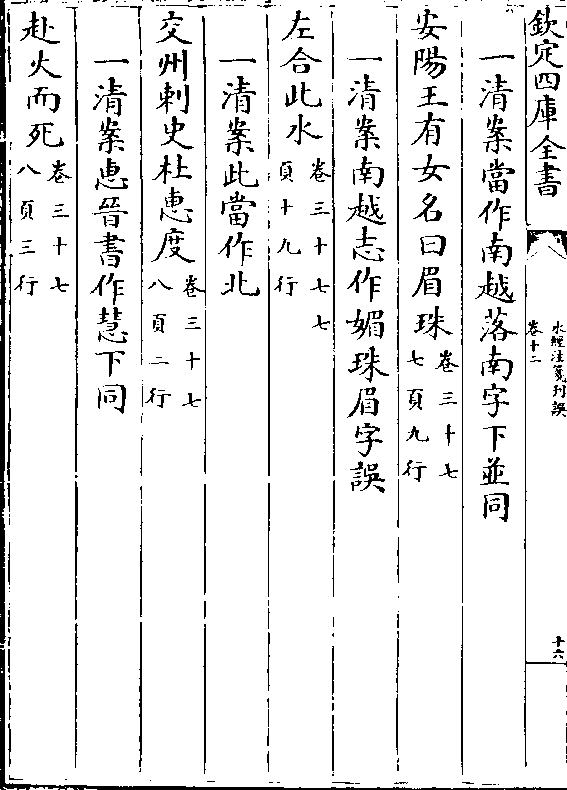 欽定四庫全書
水經注箋刊誤
卷十二
十六
一清案當作南越落南字下並同
安陽王有女名曰眉珠卷三十七
七頁九行
一清案南越志作媚珠眉字誤
左合此水卷三十七七
頁十九行
一清案此當作北
交州刺史杜惠度卷三十七
八頁二行
一清案惠晉書作慧下同
赴火而死卷三十七
八頁三行